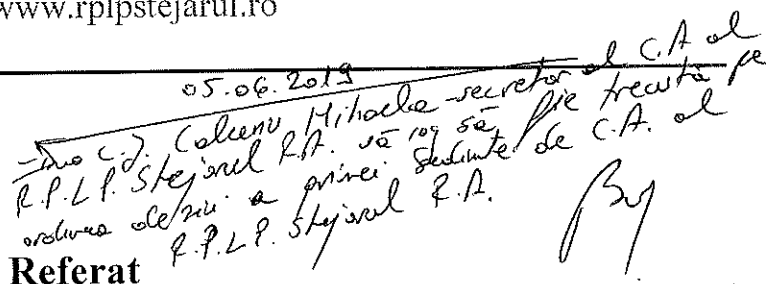 www.rplpstejarul.ro
05.06.2019
C.J. Mihaela - secretar al C.A al
R.P.L.P. Stejarul R.A. vă rog să fie trecută pe
ordinea de zi a primei ședințe de C.A. al
R.P.L.P. Stejarul R.A.
Referat